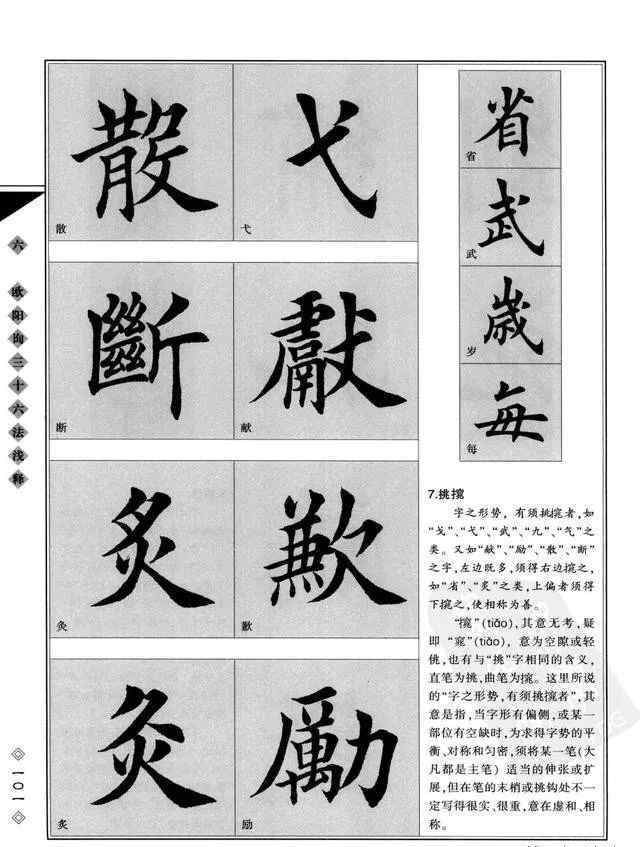 六 欧阳询三十六法浅释
101
散
散
弋
弋
斷
断
獻
献
炙
灸
歉
歉
灸
炙
勵
励
省
省
武
武
歲
岁
每
每
7.挑
字之形势，有须挑者，如
“戈”、“弋”、“武”、“九”、“气”之
类。又如“献”、“励”、“散”、“断”
之字，左边既多，须得右边之，
如“省”、“炙”之类，上偏者须得
下之，使相称为善。
“”(tiǎo)，其意无考，疑
即“窕”(tiǎo)，意为空隙或轻
佻，也有与“挑”字相同的含义，
直笔为挑，曲笔为。这里所说
的“字之形势，有须挑者”，其
意是指，当字形有偏侧，或某一
部位有空缺时，为求得字势的平
衡、对称和匀密，须将某一笔(大
凡都是主笔) 适当的伸张或扩
展，但在笔的末梢或挑钩处不一
定写得很实、很重，意在虚和、相
称。